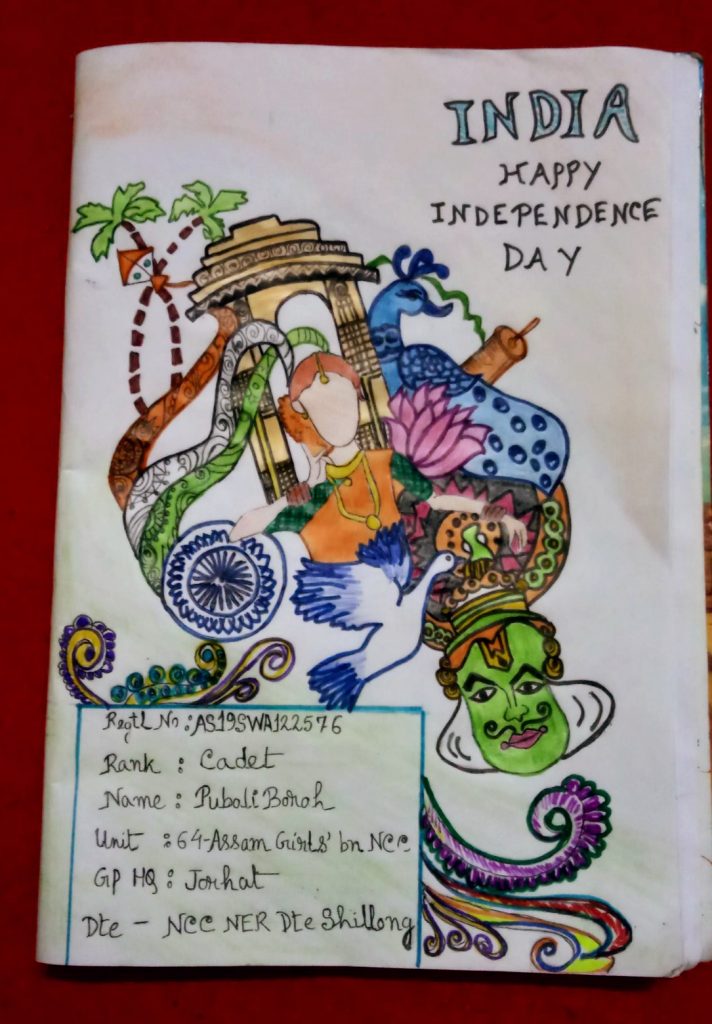 INDIA
HAPPY
INDEPENDENCE
DAY
Regtl No : AS19SWA122576
Rank : Cadet
Name : Pubali Boroh
Unit : 64-Assam Girls' bn NCC
GP HQ : Jorhat
Dte - NCC NER Dte Shillong